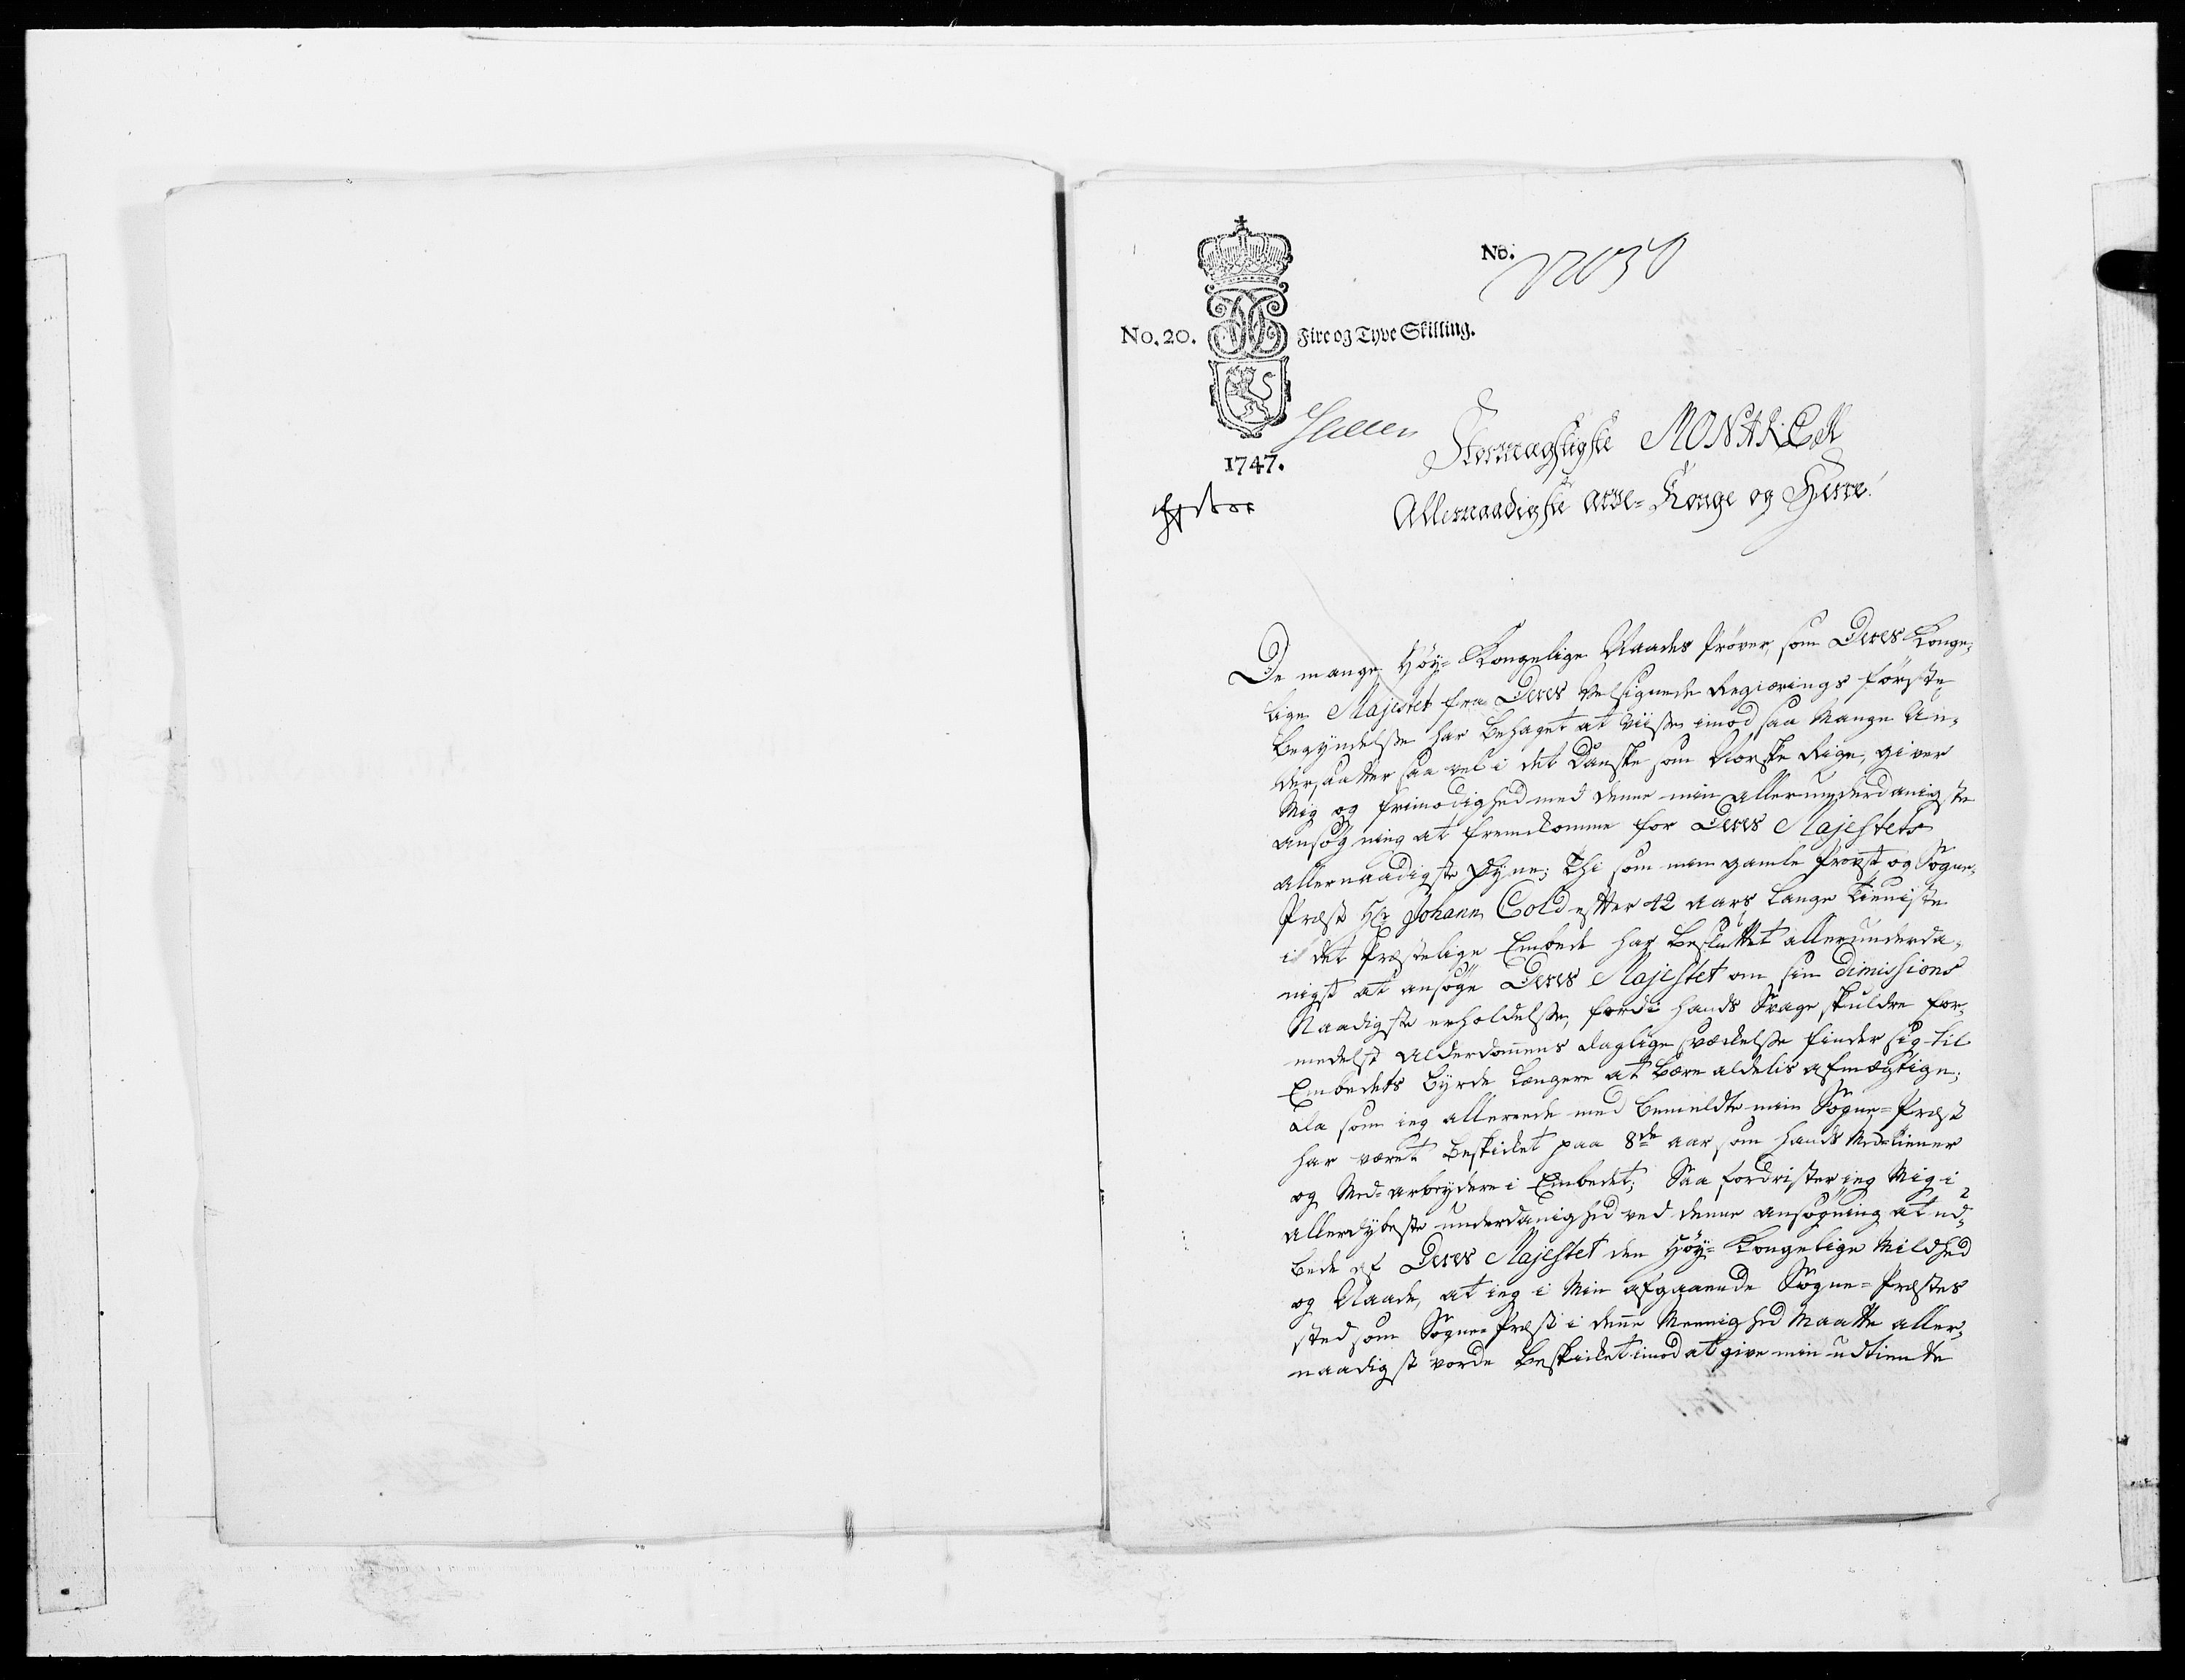 No.
No. 20. Fire og Tyve Skilling.
1747.
Stormægtigste MONARCH
Allernaadigste arve-Konge og Herre!
De mange Høy-Kongelige Naades Prøver, som Deres Konge-
lige Majestet fra Deres Velsignede Regierings første
Begyndelsse har Behaget at viise imod saa Mange Un-
dersaatter saa vel i det Danske som Norske Rige, giver
Mig og frimodighed med denne min allerunderdanigste
ansøgning at fremkomme for Deres Majestets
allernaadigste Øyne; Thi som min gamle Provst og Sogne-
Præst Hr Johann Cold efter 42 aars lange tieniste
i det Præstelige Embede har Besluttet allerunderda-
nigst at ansøge Deres Majestet om sin dimissions
Naadigste erholdelsse, fordi hands Svage skuldre for-
medelst Alderdommens daglige svækelsse finder sig til
Embedets Byrde længere at bære aldelis afmægtige;
da som ieg allerede med bemeldte min Sogne-Præst
har været Beskicket paa 8de aar som hands Med-tiener
og Med-arbeydere i Embedet; Saa fordrister ieg Mig i
allerdybeste underdanighed ved denne ansøgning at ud-
bede af Deres Majestet den Høy-Kongelige Mildhed
og Naade, at ieg i Min afgaaende Sogne-Præstes
sted som Sogne-Præst i denne Meenighed Maatte aller-
naadigst vorde Beskicket imod at give min udtiente